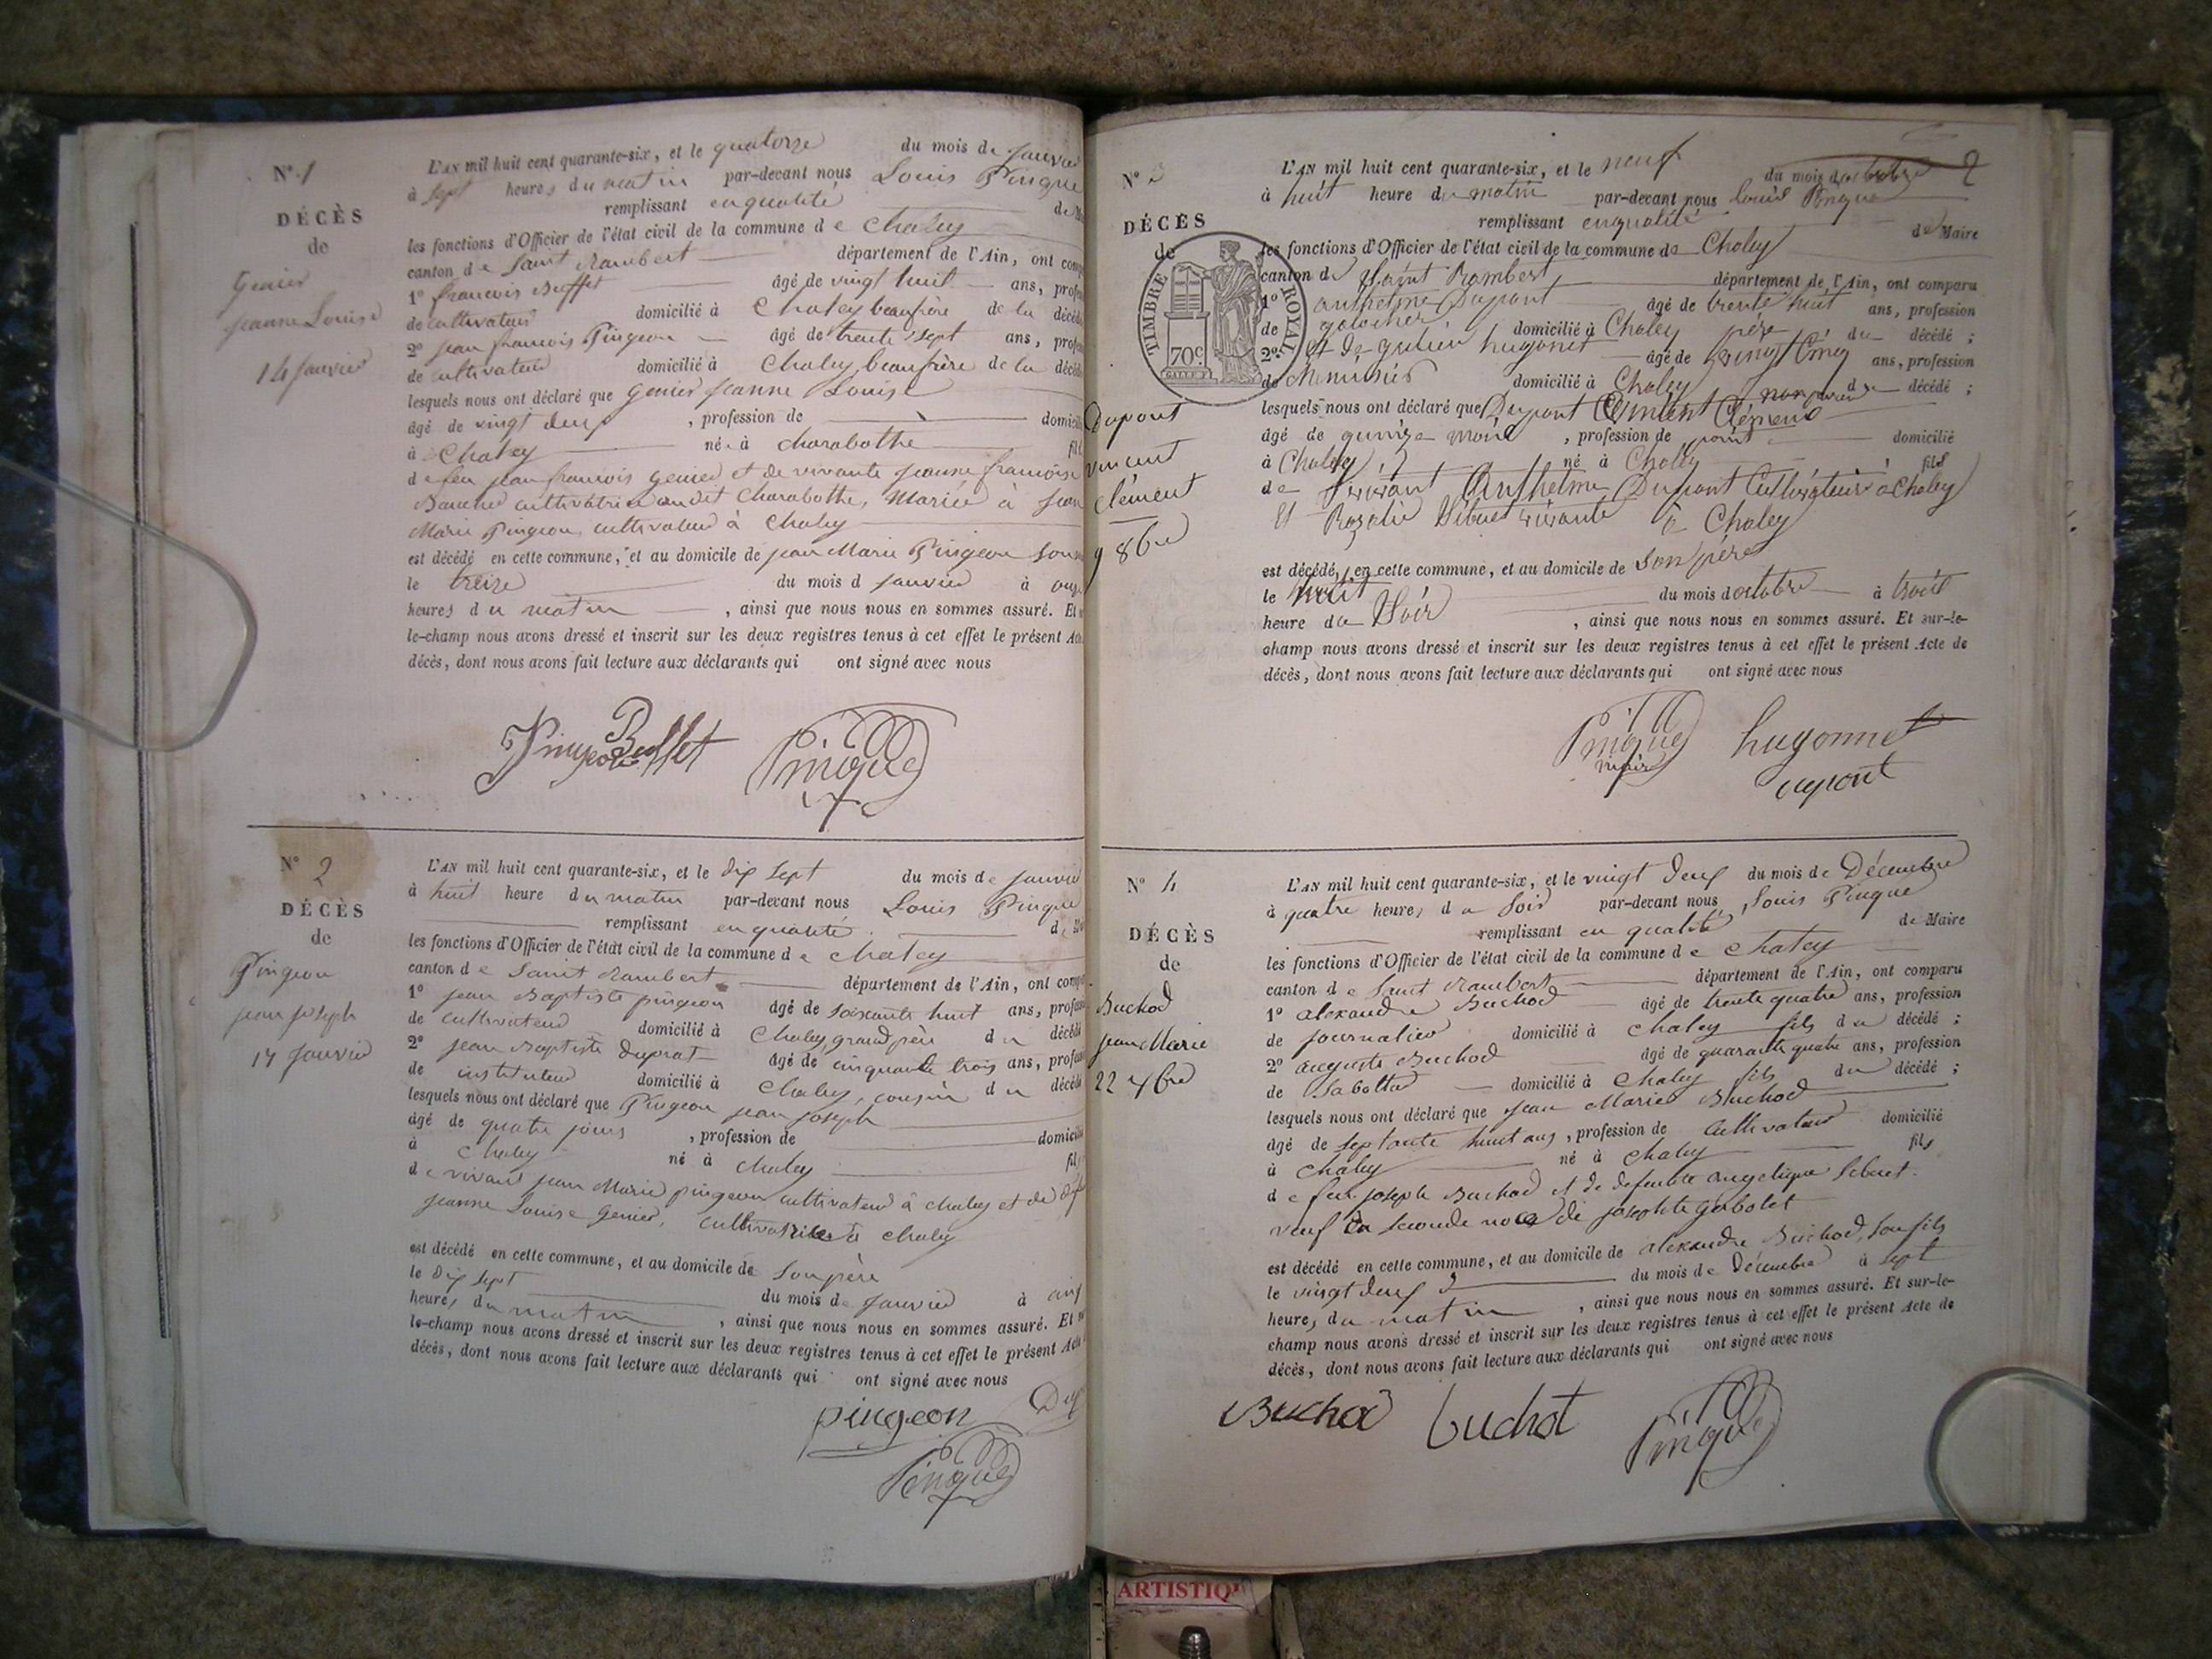 N° 1
DÉCÈS
de
Genier
Jeanne Louise
14 Janvier
L'AN mil huit cent quarante-six, et le quatorze du mois de Janvier
à sept heures du matin par-devant nous Louis Pingue
remplissant en qualité de
les fonctions d'Officier de l'état civil de la commune de Chaley
canton de Saint Rambert département de l'Ain, ont comp
1° francois Buffet âgé de vingt huit ans, profes
de cultivateur domicilié à Chaley beaufrère de la décéd
2° jean francois Pingeon âgé de trente sept ans, profes
de cultivateur domicilié à Chaley beaufrère de la décéd
lesquels nous ont déclaré que Genier Jeanne Louise
âgé de vingt deux , profession de domicil
à Chaley née à Charabothe fil
de feu jean francois Genier et de vivante Jeanne francoise
cultivatrice audit Charabothe, Mariée à Jean
Marie Pingeon cultivateur à Chaley
est décédé en cette commune, et au domicile de jean Marie Pingeon son
le treize du mois d Janvier à onze
heures du matin , ainsi que nous nous en sommes assuré. Et
le-champ nous avons dressé et inscrit sur les deux registres tenus à cet effet le présent Acte
décès, dont nous avons fait lecture aux déclarants qui ont signé avec nous
Pingeon Buffet Pingue
N° 2
DÉCÈS
de
Pingeon
jean joseph
17 Janvier
L'AN mil huit cent quarante-six, et le dix sept du mois de janvier
à huit heure du matin par-devant nous Louis Pingue
remplissant en qualité de
les fonctions d'Officier de l'état civil de la commune de Chaley
canton de Saint Rambert département de l'Ain, ont comp
1° jean Baptiste pingeon âgé de soixante huit ans, profes
de cultivateur domicilié à Chaley, grand père du décédé
2° jean Baptiste Duprat âgé de cinquante trois ans, profes
de instituteur domicilié à Chaley, cousin du décédé
lesquels nous ont déclaré que Pingeon jean joseph
âgé de quatre jours , profession de domicilié
à Chaley né à Chaley fils
de vivant jean Marie pingeon cultivateur à chaley et de
Jeanne Louise Genier, cultivatrice à chaley
est décédé en cette commune, et au domicile de son père
le dix sept du mois de Janvier à cinq
heures du matin , ainsi que nous nous en sommes assuré. Et
le-champ nous avons dressé et inscrit sur les deux registres tenus à cet effet le présent Acte
décès, dont nous avons fait lecture aux déclarants qui ont signé avec nous
pingeon Dup
Pingue
2
N° 3
DÉCÈS
de
TIMBRE ROYAL
70c
Dupont
vincent
clément
9 8bre
L'AN mil huit cent quarante-six, et le neuf du mois d octobre
à huit heure du matin par-devant nous Louis Pingue
remplissant enqualité de Maire
les fonctions d'Officier de l'état civil de la commune de Chaley
canton de Saint Rambert département de l'Ain, ont comparu
1° anthelme Dupont âgé de trente huit ans, profession
de galochier domicilié à Chaley père du décédé ;
2° et de julien hugonet âgé de vingt cinq ans, profession
de Menusier domicilié à Chaley non parent du décédé ;
lesquels nous ont déclaré que Dupont Vincent Clément
âgé de quinze mois , profession de point domicilié
à Chaley né à Chaley fils
de vivant Anthelme Dupont Cultivateur à Chaley
Et Rozalie vivante à Chaley
est décédé, en cette commune, et au domicile de son père
le huit du mois d octobre à trois
heure du Soir , ainsi que nous nous en sommes assuré. Et sur-le-
champ nous avons dressé et inscrit sur les deux registres tenus à cet effet le présent Acte de
décès, dont nous avons fait lecture aux déclarants qui ont signé avec nous
Pingue hugonnet
maire dupont
N° 4
DÉCÈS
de
Buchod
jean Marie
22 Xbre
L'AN mil huit cent quarante-six, et le vingt deux du mois de Décembre
à quatre heures du soir par-devant nous Louis Pingue
remplissant en qualité de Maire
les fonctions d'Officier de l'état civil de la commune de chaley
canton de Saint Rambert département de l'Ain, ont comparu
1° alexandre Buchod âgé de trente quatre ans, profession
de journalier domicilié à chaley fils du décédé ;
2° auguste Buchod âgé de quarante quatre ans, profession
de Sabottier domicilié à chaley fils du décédé ;
lesquels nous ont déclaré que jean Marie Buchod
âgé de septante huit ans , profession de cultivateur domicilié
à chaley né à chaley fils
de feu joseph Buchod et de defunte angelique Sibuet
veuf en seconde noce de josephte gobolet
est décédé en cette commune, et au domicile de alexandre Buchod, son fils
le vingt deux du mois de Décembre à sept
heures du matin , ainsi que nous nous en sommes assuré. Et sur-le-
champ nous avons dressé et inscrit sur les deux registres tenus à cet effet le présent Acte de
décès, dont nous avons fait lecture aux déclarants qui ont signé avec nous
Buchod buchot Pingue
ARTISTIQ